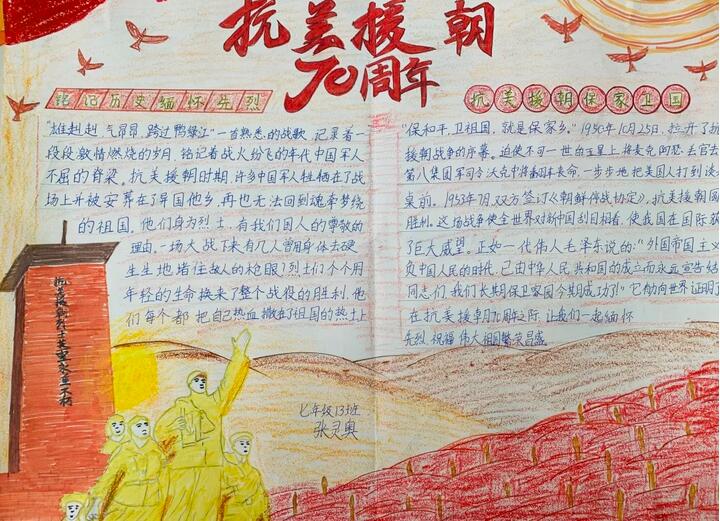 抗美援朝
70周年
铭记历史缅怀先烈
抗美援朝保家卫国
"雄赳赳,气昂昂,跨过鸭绿江"一首熟悉的战歌,记录着一
段段激情燃烧的岁月,铭记着战火纷飞的年代中国军人
不屈的脊梁。抗美援朝时期,许多中国军人牺牲在了战
场上并被安葬在了异国他乡,再也无法回到魂牵梦绕
的祖国。他们身为烈士,有我们国人的尊敬的
理由。一场大战下来有几人曾用身体去硬
生生地堵住敌人的枪眼?烈士们个个用
年轻的生命换来了整个战役的胜利,他
们每个都把自己热血撒在了祖国的热土上
"保和平,卫祖国,就是保家乡。"1950年10月25日,拉开了抗
援朝战争的序幕。迫使不可一世的五星上将麦克阿瑟丢官去
第八集团军司令沃克中将
一步步地把美国人打到谈
桌前。1953年7月,双方签订《朝鲜停战协定》,抗美援朝
胜利。这场战争使全世界对新中国刮目相看,使我国在国际
了巨大威望。正如一代伟人毛泽东说的:"外国帝国主
负中国人民的时代,已由中华人民共和国的成立而永远宣告结
同志们,我们长期保卫家园今期成功了!"它
向世界证明了
在抗美援朝70周年之际,让我们一起缅怀
先烈,祝福伟大祖国繁荣昌盛。
七年级13班
张灵奥